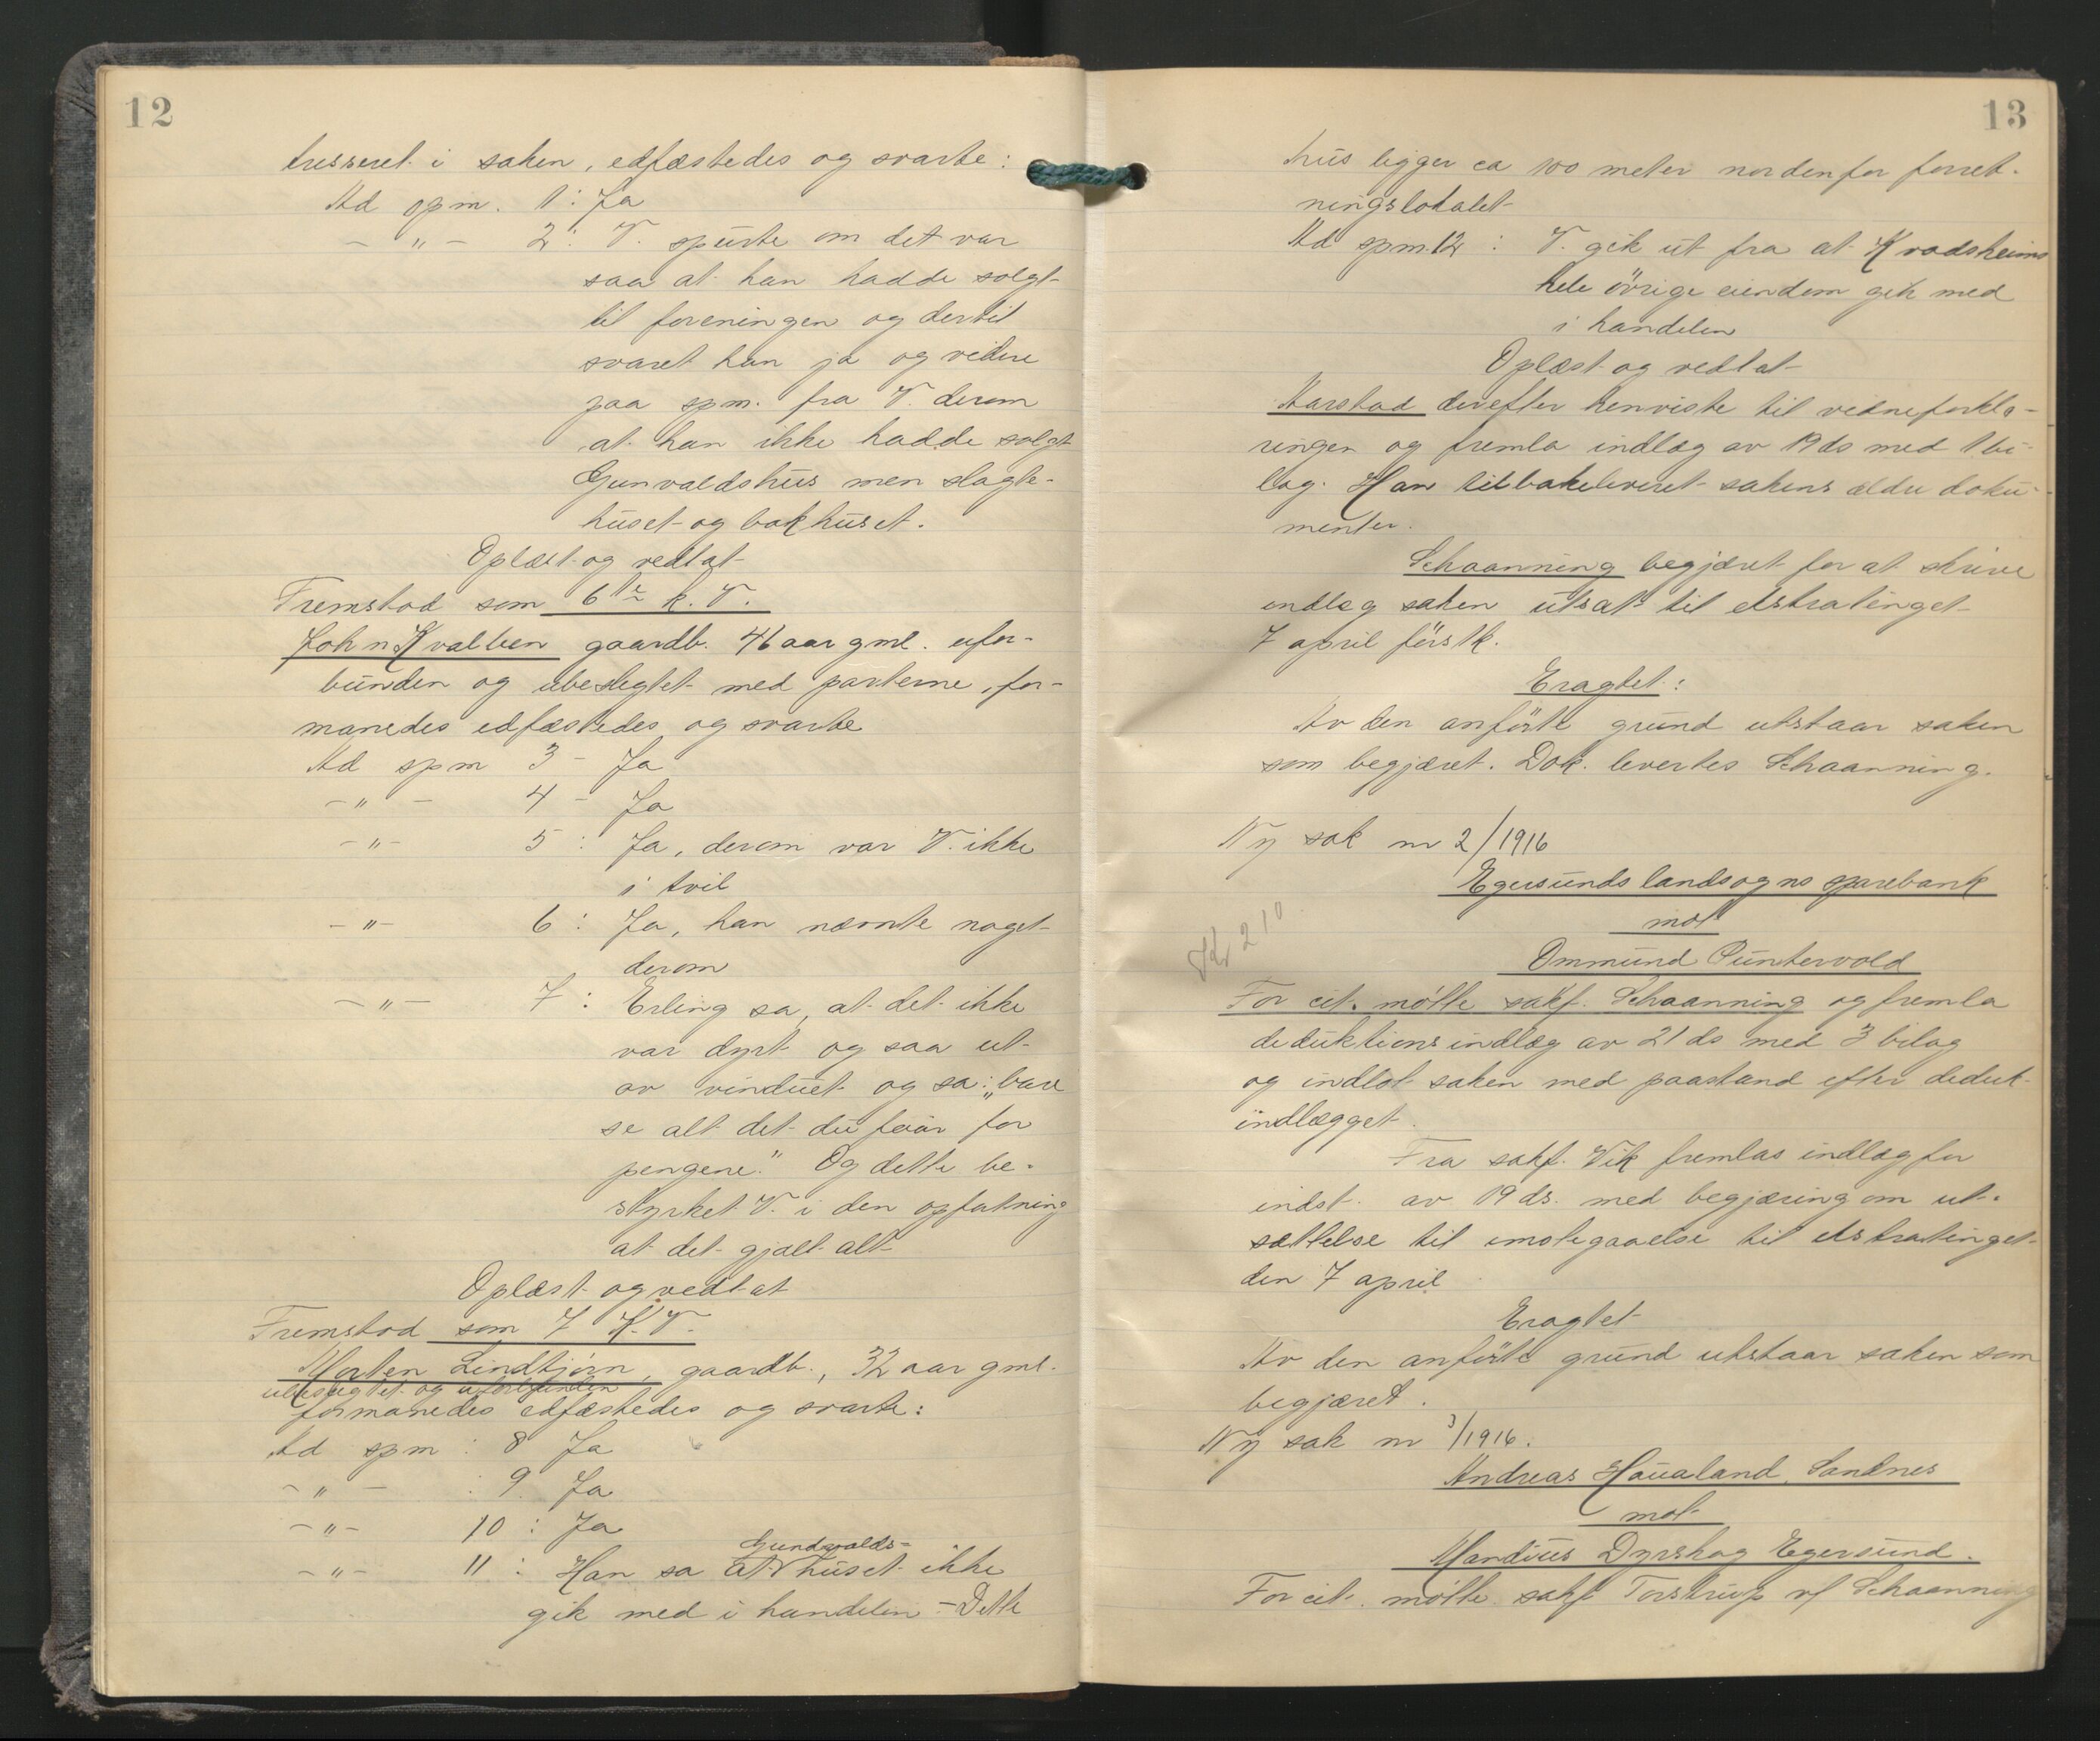 12
tresseret i saken, edfæstedes og svarte:
Ad spm. 1: Ja
- " - 2: V. spurte om det var
saa at han hadde solgt
til foreningen og dertil
svaret han ja og videre
paa spm. fra V. derom
at han ikke hadde solgt
Gunvaldshus men slagte-
huset og bakhuset.
Oplæst og vedtat
Fremstod som 6te k. V.
John Kvalben gaardb. 46 aar gml. ufor-
bunden og ubeslegtet med parterne, for-
manedes edfæstedes og svarte
Ad spm 3 - Ja
- " - 4 - Ja
- " - 5: Ja, derom var V. ikke
i tvil
- " - 6: Ja, han nævnte noget
derom
- " - 7: Erling sa, at det ikke
var dyrt og saa ut
av vinduet og sa: "bare
se alt det du faar for
pengene." Og dette be-
styrket V. i den opfatning
at det gjalt alt
Oplæst og vedtat
Fremstod som 7 K. V.
Morten Lindtjørn, gaardb., 32 aar gml.
ubeslegtet og uforbunden
formanedes edfæstedes og svarte:
Ad spm: 8 Ja
- " - : 9. Ja
- " - 10: Ja
Gundvalds-
- " - 11: Han sa at huset ikke
gik med i handelen - Dette
13
hus ligger ca 100 meter nordenfor forret-
ningslokalet
Ad spm. 12: V. gik ut fra at Kvadsheims
hele øvrige eiendom gik med
i handelen
Oplæst og vedtat
Aarstad derefter henviste til vidneforkla-
ringen og fremla indlæg av 19 ds med 1 bi-
lag. Han tilbakeleveret sakens ældre doku-
menter.
Schaanning begjæret for at skrive
indlæg saken utsat til ekstratinget
7 april førstk.
Eragtet:
Av den anførte grund utstaar saken
som begjæret. Dok. levertes Schaanning.
Ny sak nr 2/1916
Egersunds landsogns sparebank
mot
Kr 210
Ommund Puntervold
For cit. møtte sakf. Schaanning og fremla
deduktionsindlæg av 21 ds med 3 bilag
og indlot saken med paastand efter deduk-
indlægget.
Fra sakf. Vik fremlas indlæg for
indst. av 19 ds. med begjæring om ut-
sættelse til imotegaaelse til ekstratinget
den 7 april
Eragtet
Av den anførte grund utstaar saken som
begjæret.
Ny sak nr 3/1916.
Andreas Haualand, Sandnes
mot
Mandius Dyrskog Egersund.
For cit. møtte sakf Torstrup v/ Schaanning